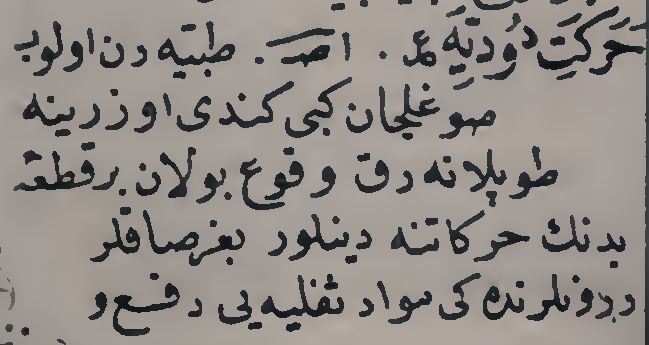 حَرَكَتِ دُودِيَّه عـ . اصـ . طبيّه دن اولوب
صوغلجان كبى كندى اوزرينه
طوپلانه رق وقوع بولان بر قطعهٔ
بدنك حركاتنه دينلور بغرصاقلر
درونلرنده كى مواد ثفليه يى دفع و